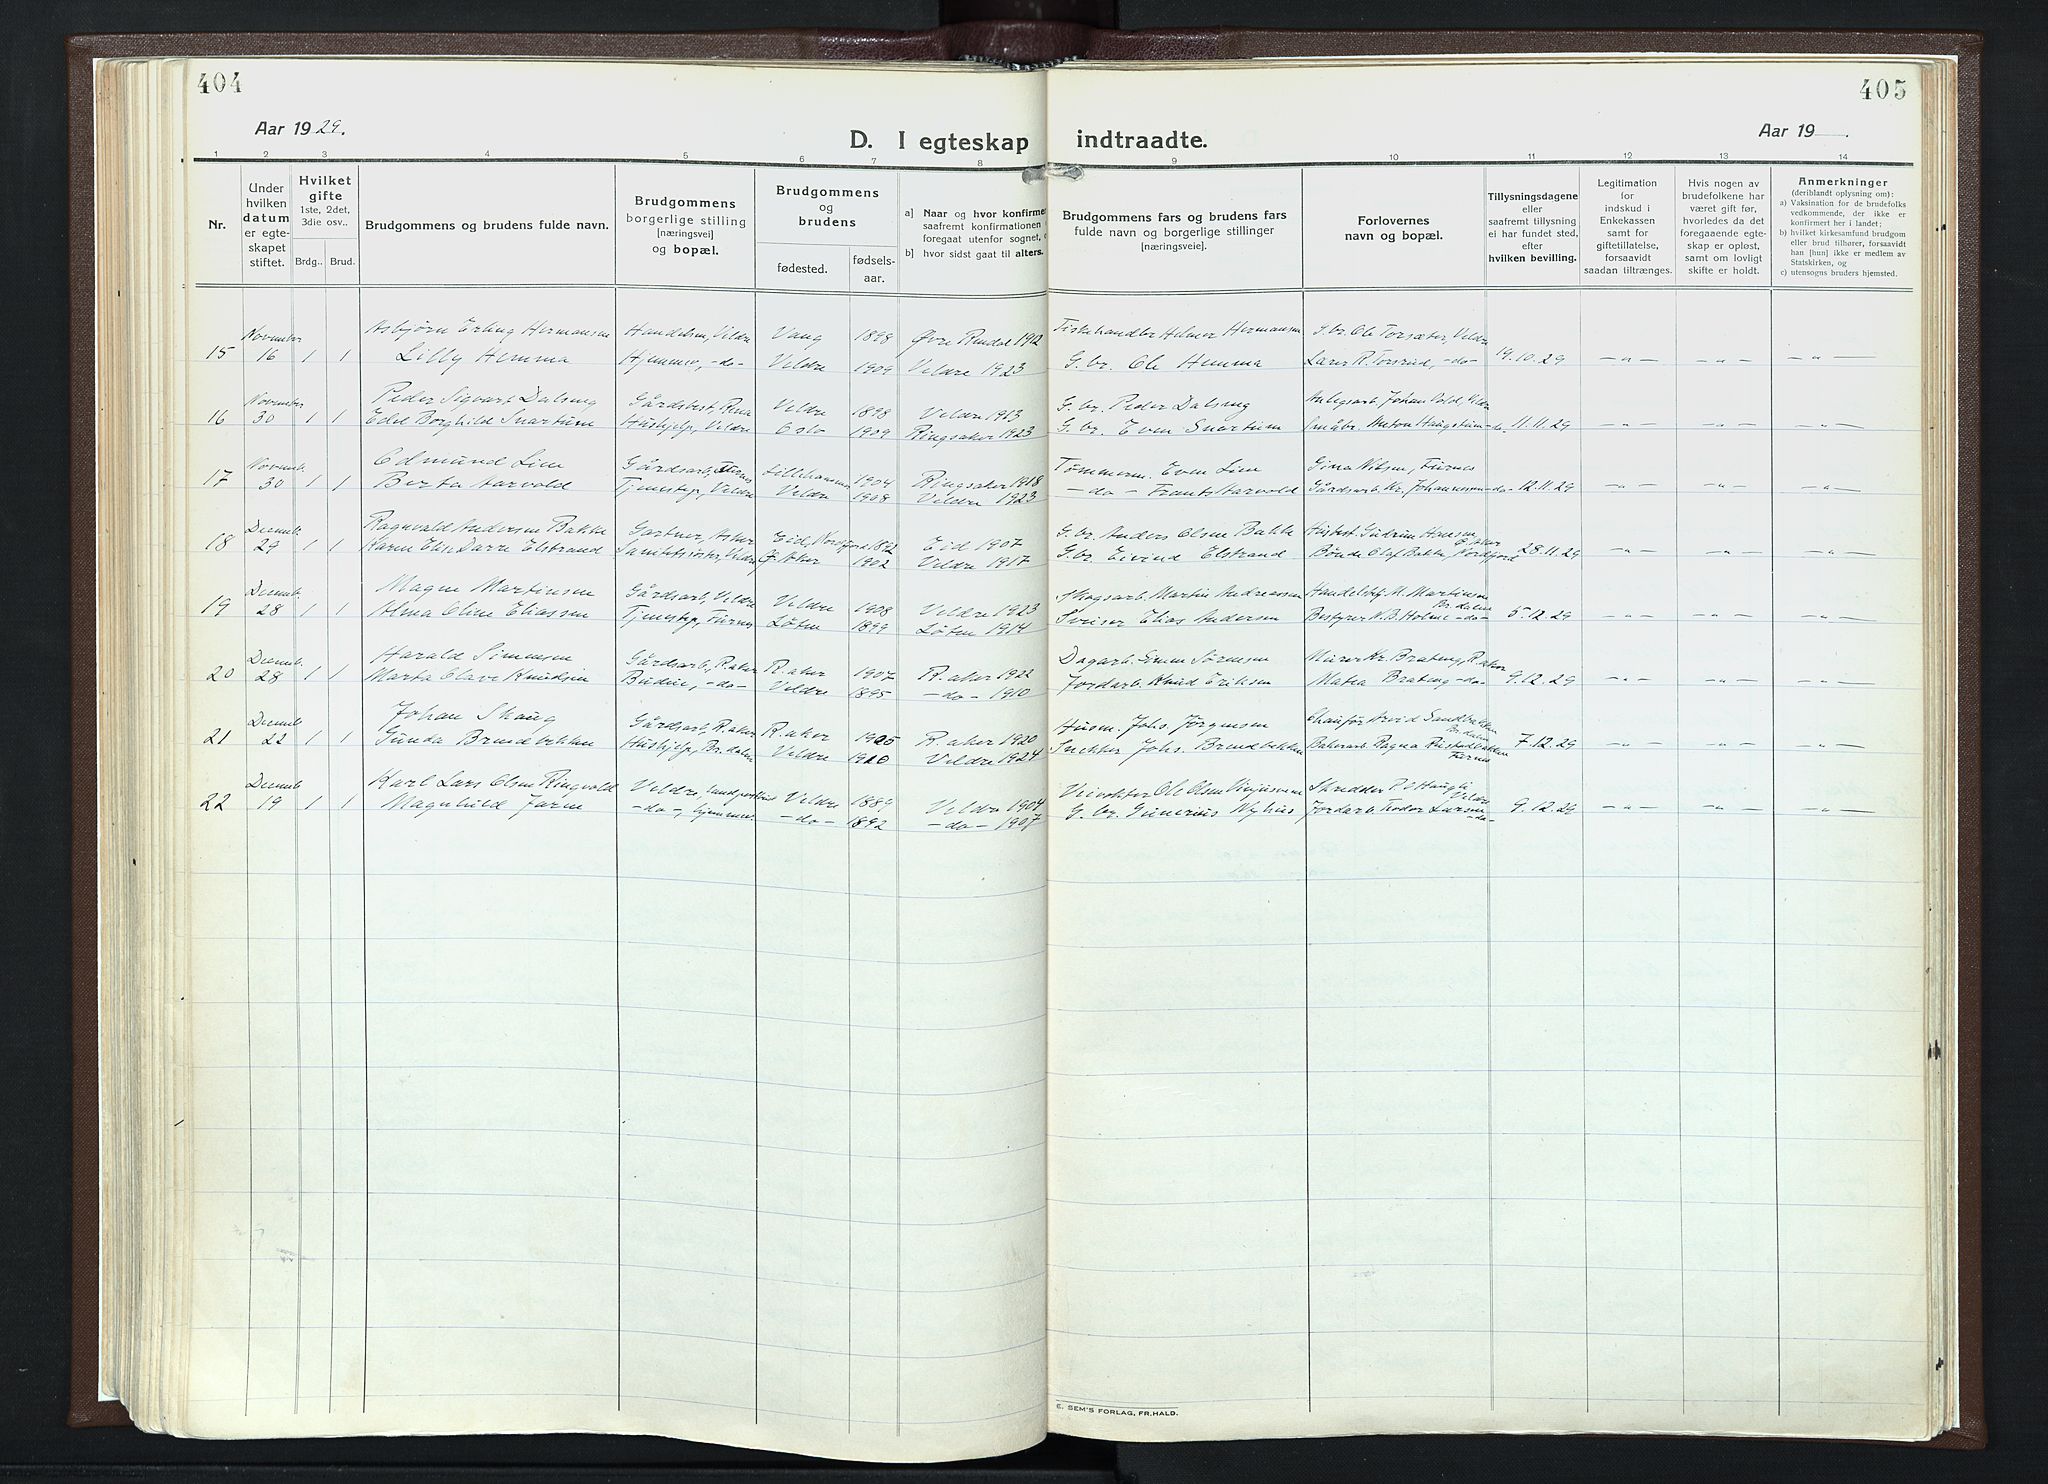 404
405
Aar 1929.
D. I egteskap indtraadte.
Aar 19 .
1 2 3 4 5 6 7 8 9 10 11 12 13 14
Nr.
Under hvilken datum er egteskapet stiftet.
Hvilket gifte
1ste, 2det, 3die osv..
Brdg.. Brud.
Brudgommens og brudens fulde navn.
Brudgommens borgerlige stilling [næringsvei] og bopæl.
Brudgommens og brudens
fødested.
fødselsaar.
a] Naar og hvor konfirmer
saafremt konfirmationen
foregaat utenfor sognet,
b] hvor sidst gaat til alters.
Brudgommens fars og brudens fars fulde navn og borgerlige stillinger [næringsveie].
Forlovernes navn og bopæl.
Tillysningsdagene eller saafremt tillysning ei har fundet sted, efter hvilken bevilling.
Legitimation for indskud i Enkekassen samt for giftetillatelse, forsaavidt saadan tiltrænges.
Hvis nogen av brudefolkene har været gift før, hvorledes da det foregaaende egteskap er opløst, samt om lovligt skifte er holdt.
Anmerkninger
(deriblandt oplysning om):
a) Vaksination for de brudefolks vedkommende, der ikke er konfirmert her i landet;
b) hvilket kirkesamfund brudgom eller brud tilhører, forsaavidt han [hun] ikke er medlem av Statskirken, og
c) utensogns bruders hjemsted.
November Asbjørn Erling Hermansen Handelsm, Veldre Vang 1898 Øvre Rendal 1912 Fiskehandler Helmer Hermansen G. br. Ole Torsæter, Veldre
15 16 1 1 Lilly Hemma Hjemmev, -do- Veldre 1909 Veldre 1923 G. br. Ole Hemma Lars R. Torsrud, -do- 19.10.29 -„- -„- -„-
November Peder Sigvart Dalseng Gårdsbest, Rena Veldre 1898 Veldre 1913 G. br. Peder Dalseng Anlegsarb. Johan Vold, Veldre
16 30 1 1 Edel Borghild Snartum Hushjelp, Veldre Oslo 1909 Ringsaker 1923 G. br. Even Snartum Småbr. Anton Haugstun -do- 11.11.29 -„- -„- -„-
Novemb. Edmund Lien Gårdsarb, Furnes Lillehammer 1904 Ringsaker 1918 Tømmerm. Even Lien Gina Nilsen, Furnes
17 30 1 1 Berta Aarvold Tjenestep, Veldre Veldre 1908 Veldre 1923 -do- Frants Aarvold Gårdsarb. Kr. Johannessen -do- 12.11.29 -„- -„- -„-
Decemb. Ragnvald Andersen Bakke Gartner, Asker Eid, Nordfjord 1892 Eid 1907 G. br. Anders Olsen Bakke Husbest. Gudrun Hansen Ø. Aker
18 29 1 1 Karen Elise Darre Elstrand Samtidssøster, Veldre Ø. Aker 1902 Veldre 1917 G. br. Eivind Elstrand Bonde Olaf Bakke, Nordfjord 28.11.29 -„- -„- -„-
Decemb. Magne Martinsen Gårdsarb, Veldre Veldre 1908 Veldre 1923 Skogsarb. Martin Andreassen Handelsbetj. M. Martinsen Br.dalen
19 28 1 1 Alma Oline Eliassen Tjenestep, Furnes Løten 1899 Løten 1914 Sveiser Elias Andersen Bestyrer N. B. Holme -do- 5.12.29 -„- -„- -„-
Decemb. Harald Simensen Gårdsarb, R.aker R.aker 1907 R.aker 1922 Dagarb. Simen Sørensen Murer Kr. Brateng, R.aker
20 28 1 1 Marta Olave Knudsen Budeie, -do- Veldre 1895 -do- 1910 Jordarb. Knud Eriksen Matea Brateng -do- 9.12.29 -„- -„- -„-
Decemb. Johan Skaug Gårdsarb, R.aker R.aker 1905 R.aker 1920 Husm. Johs. Jørgensen Chauffør Arvid Sandbakken Br.dalen
21 22 1 1 Gunda Brendbekken Hushjelp, Br.dalen Veldre 1910 Veldre 1924 Snekker Johs. Brendbekken Bakerarb. Ragna Rustadbakken Furnes 7.12.29 -„- -„- -„-
Decemb Karl Lars Olsen Ringvold Veldre, landpostbud Veldre 1889 Veldre 1904 Veivokter Ole Olsen Skredder P. O. Haugli Veldre
22 19 1 1 Magnhild Jaren -do-, hjemmev. -do- 1892 -do- 1907 G. br. Gunerius Nyhus Jordarb. Teodor Larsen -do- 9.12.29 -„- -„- -„-
E. SEM'S FORLAG, FR.HALD.